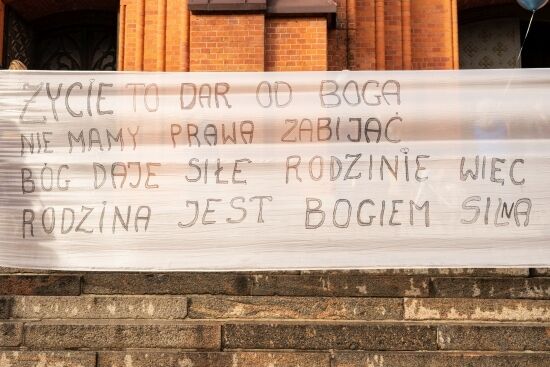 ŻYCIE TO DAR OD BOGA
NIE MAMY PRAWA ZABIJAĆ
BÓG DAJE SIŁĘ RODZINIE WIĘC
RODZINA JEST BOGIEM SILNA